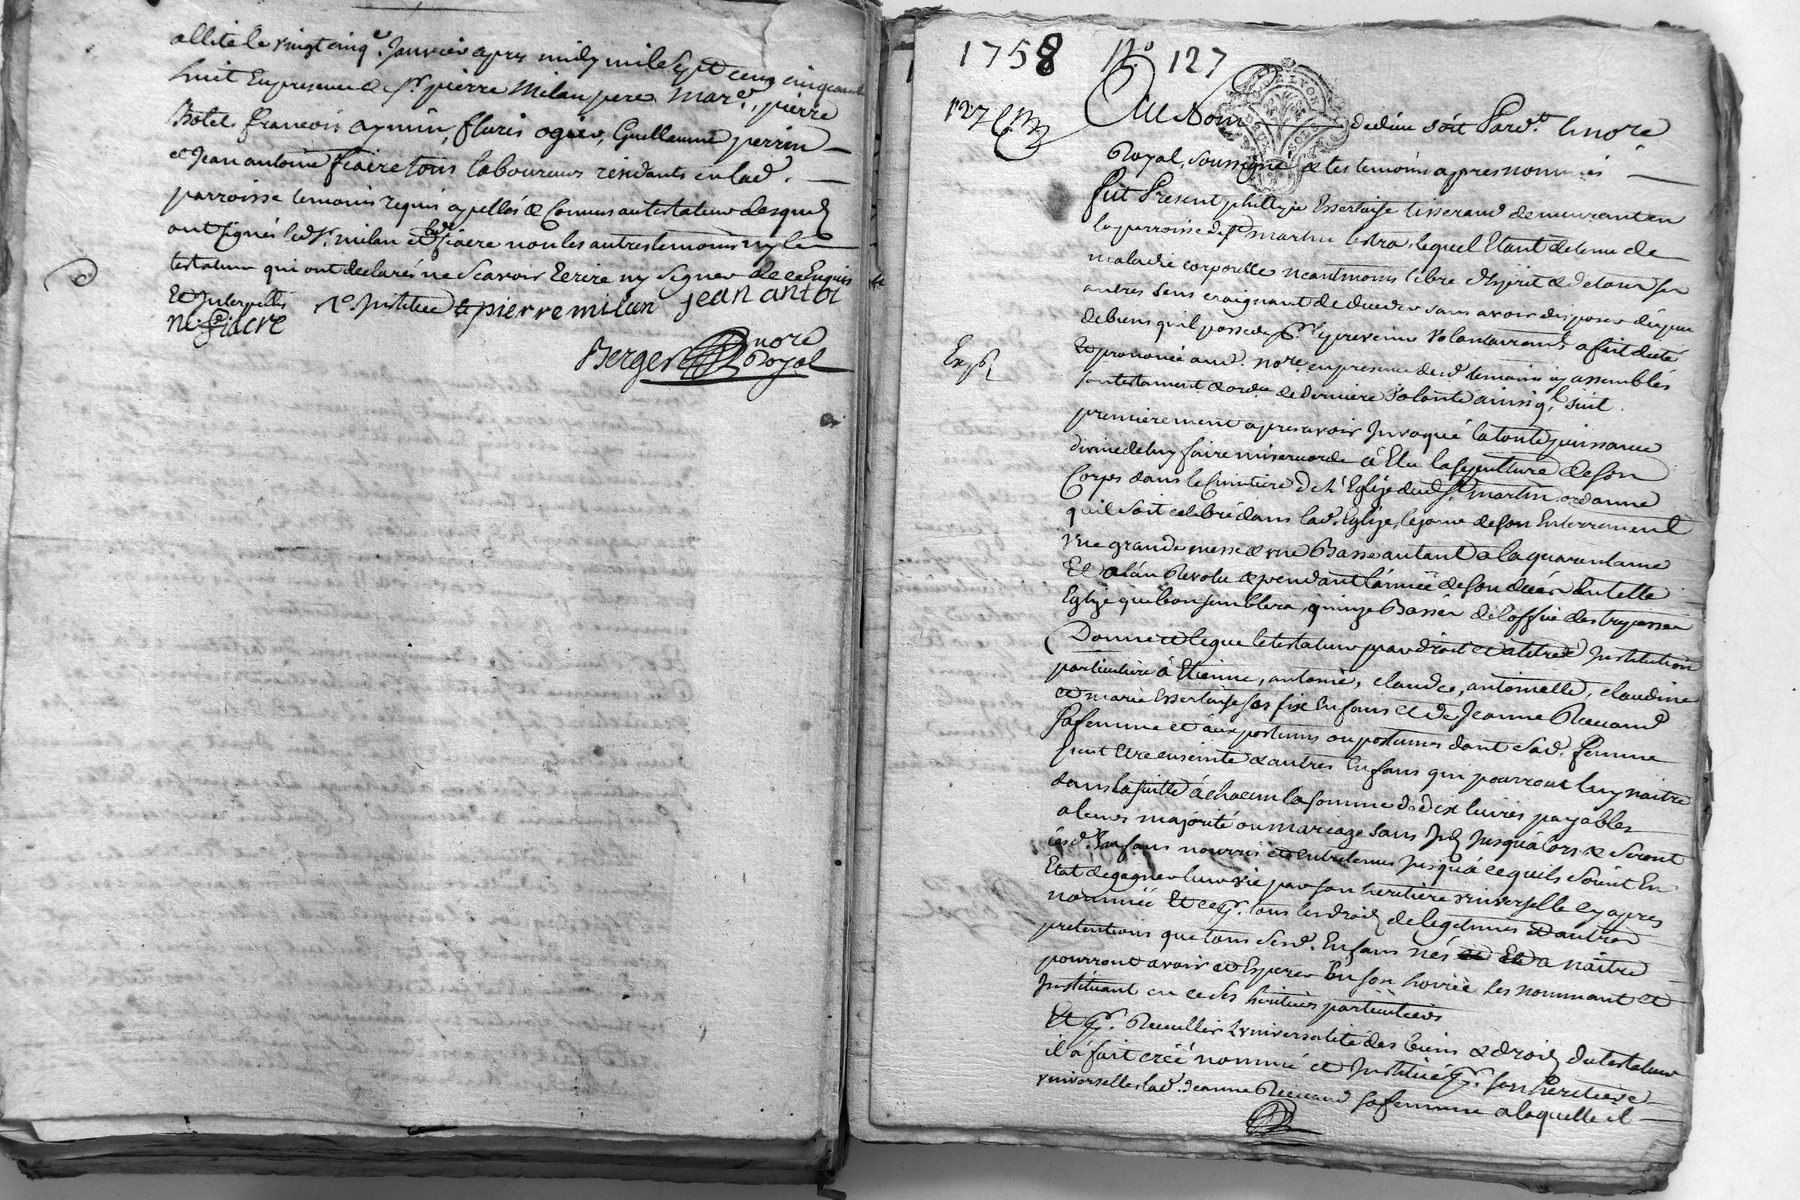 allité le vingt cinq.e Janvier apres midy mil sept cens cinquante
huit En presence de sr. pierre Milan pere Mar.d, pierre
Botel, francois aymin, fluris ogier, Guillaume perrin
et Jean antoine fiacre tous laboureurs residants en lad.
parroisse temoins requis apellés & Connus au testateur desquels
ont signés led. sr. milan et led. fiacre non les autres temoins ny le
testateur qui ont declarés ne Scavoir Ecrire ny Signer de ce Enquis
Et Interpellés
pierre milan jean antoi
ne fiacre
Berger nore
Royal
1758 No 127
127
Au Nom de dieu soit Pard.t le no.re
Royal, soussigné & les temoins apres nommés
fut Present phillippe Esserlaise tisserand demeurant en
la parroisse de st martin lestra, lequel Etant detenu de
maladie corporelle neantmoins libre d'Esprit & de tous ses
autres sens craignant de deceder sans avoir disposer du peu
de biens qu'il possede pr. y prevenir Volontairement a fait dicté
Et prononcé aud. no.re en presence desd. temoins icy assemblés
son testament & ord.ce de derniere Volonté ainsi q.l suit.
Exp.
premierement apres avoir Invoqué la toute puissance
divine de luy faire misericorde a Elu la sepulture de son
Corps dans le Cimitiere de l'Eglize dud. st martin, ordonne
quil soit celebré dans lad. Eglize, le jour de son Enterrement
vne grande messe & vne Basse autant a la quarantaine
Et a lan Revolu & pendant l'année de son deces dans telle
Eglize que bon semblera, quinze Basses de l'office des trepassés
Donne et legue le testateur par droit et a titre d'Institution
particuliere à Etienne, antoine, claude, antoinette, claudine
et marie Esserlaise ses six Enfans et de Jeanne
sa femme et aux postumes ou postumes dont sad. femme
peut Etre enceinte & autres Enfans qui pourront luy naitre
dans la suitte à chacun la somme de dix livres payables
a leurs majorité ou mariage sans Jusqu'a lors & seront
cesd. Enfans nourris et entretenus jusqu'a ce quils soient En
Etat de gagner leur vie par son heritiere vniverselle cy apres
nommée Et ce pr. tous les droits de legitimes et autres
pretentions que tous sesd. Enfans nés et a naitre
pourront avoir et Esperer En son hoirie les nommant et
Instituant en ce ses heritiers particuliers
Et pr. Recueillir L'vniversalité des biens & droits du testateur
il a fait créé nommé et Institué pr. son heritiere
vniverselle lad. Jeanne sa femme a laquelle il